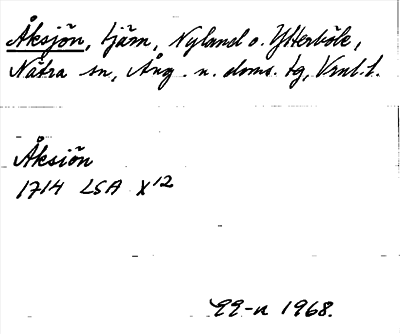 Åksjön, tjärn, Nyland o. Ytterböle,
Nätra sn, Ång. n. doms. tg, Vrnl. l.
Åksiön
1714 LSA X12
1968.